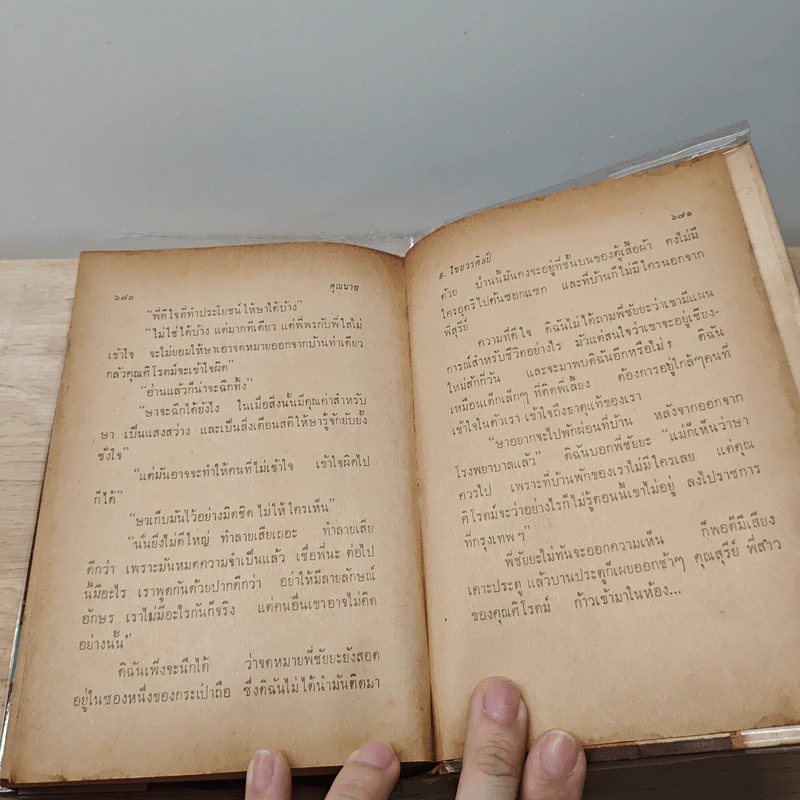 ๖๗๐ คุณนาย
“พี่ดีใจที่ทำประโยชน์ให้ษาได้บ้าง”
“ไม่ใช่ได้บ้าง แต่มากทีเดียว แต่พี่พรกับพี่ไลไม่
เข้าใจ จะไม่ยอมให้ษาเอาจดหมายออกจากบ้านท่าเดียว
กลัวคุณศิโรตม์จะเข้าใจผิด”
“อ่านแล้วก็น่าจะฉีกทิ้ง”
“ษาจะฉีกได้ยังไง ในเมื่อสิ่งนั้นมีคุณค่าสำหรับ
ษา เป็นแสงสว่าง และเป็นสิ่งเตือนสติให้ษารู้จักยับยั้ง
ชั่งใจ”
“แต่มันอาจจะทำให้คนที่ไม่เข้าใจ เข้าใจผิดไป
ก็ได้”
“ษาเก็บมันไว้อย่างมิดชิด ไม่ให้ใครเห็น”
“นั่นยิ่งไม่ดีใหญ่ ทำลายเสียเถอะ ทำลายเสีย
ดีกว่า เพราะมันหมดความจำเป็นแล้ว เชื่อพี่นะ ต่อไป
นี้มีอะไร เราพูดกันด้วยปากดีกว่า อย่าให้มีลายลักษณ์
อักษร เราไม่มีอะไรกันก็จริง แต่คนอื่นเขาอาจไม่คิด
อย่างนั้น”
ดิฉันเพิ่งจะนึกได้ ว่าจดหมายพี่ชัยยะยังสอด
อยู่ในซองหนึ่งของกระเป๋าถือ ซึ่งดิฉันไม่ได้นำมันติดมา
อ. ไชยวรศิลป์ ๖๗๑
ด้วย ป่านนี้มันคงจะอยู่ที่ชั้นบนของตู้เสื้อผ้า คงไม่มี
ใครอุตริไปค้นซอกแซก และที่บ้านก็ไม่มีใครนอกจาก
พี่สุรีย์
ความที่ดีใจ ดิฉันไม่ได้ถามพี่ชัยยะว่าเขามีแผน
การณ์สำหรับชีวิตอย่างไร มัวแต่สนใจว่าเขาจะอยู่เชียง-
ใหม่สักกี่วัน และจะมาพบดิฉันอีกหรือไม่? ดิฉัน
เหมือนเด็กเล็กๆ ที่ติดพี่เลี้ยง ต้องการอยู่ใกล้ๆคนที่
เข้าใจในตัวเรา เข้าใจถึงธาตุแท้ของเรา
“ษาอยากจะไปพักผ่อนที่บ้าน หลังจากออกจาก
โรงพยาบาลแล้ว” ดิฉันบอกพี่ชัยยะ “แม่ก็เห็นว่าษา
ควรไป เพราะที่บ้านพักของเราไม่มีใครเลย แต่คุณ
ศิโรตม์จะว่าอย่างไรก็ไม่รู้ตอนนี้เขาไม่อยู่ ลงไปราชการ
ที่กรุงเทพฯ”
พี่ชัยยะไม่ทันจะออกความเห็น ก็พอดีมีเสียง
เคาะประตู แล้วบานประตูก็เผยออกช้าๆ คุณสุรีย์ พี่สาว
ของคุณศิโรตม์ ก้าวเข้ามาในห้อง...